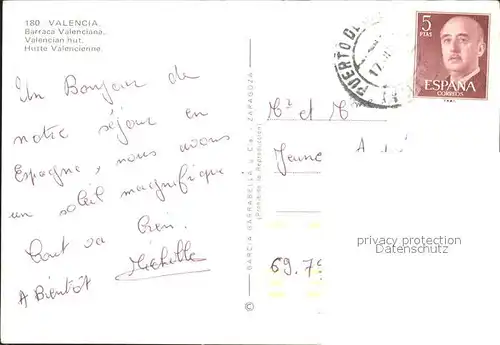 180 VALENCIA.
Barraca Valenciana.
Valencian hut.
Hutte Valencienne.
Un Bonjour de
notre séjour en
Espagne, nous avons
un soleil magnifique
Tout va bien.
Michelle
A Bientôt
© - BARCIA GARRABELLA & Cia. (ZARAGOZA)
(Prohibida la Reproducción)
PUERTO DE
17
5
PTAS
ESPAÑA
CORREOS
Mr et Mme
Jeune
69.79
privacy protection
Datenschutz